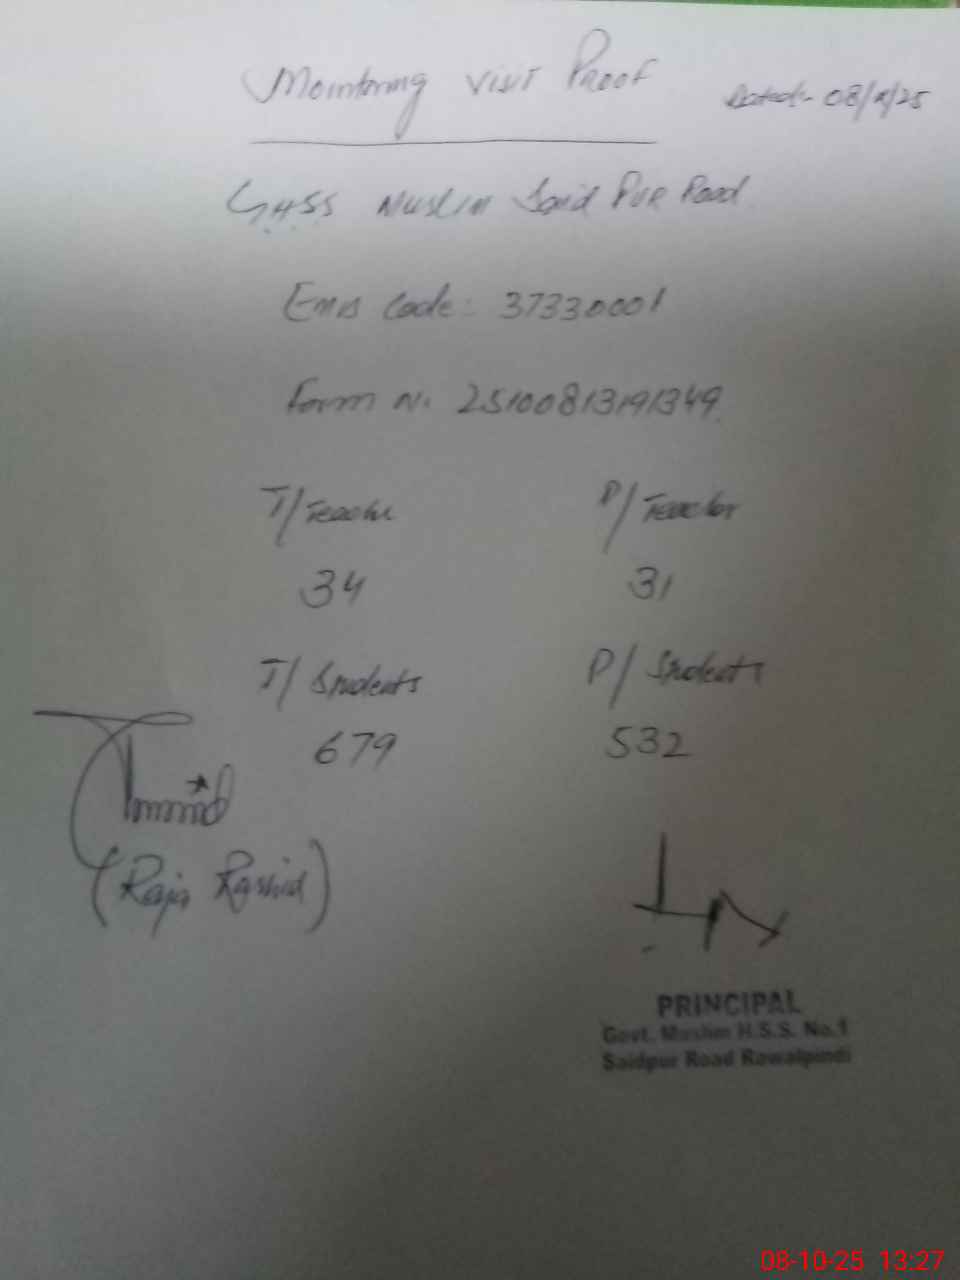 Monitoring Visit Proof
Dated:- 08/10/25
G.H.S.S Muslim Said Pur Road
Emis Code: 37330001
Form No. 25100813191349
T/Teacher P/Teacher
34 31
T/Students P/Students
679 532
(Raja Rashid)
PRINCIPAL
Govt. Muslim H.S.S. No.1
Saidpur Road Rawalpindi
08-10-25 13:27